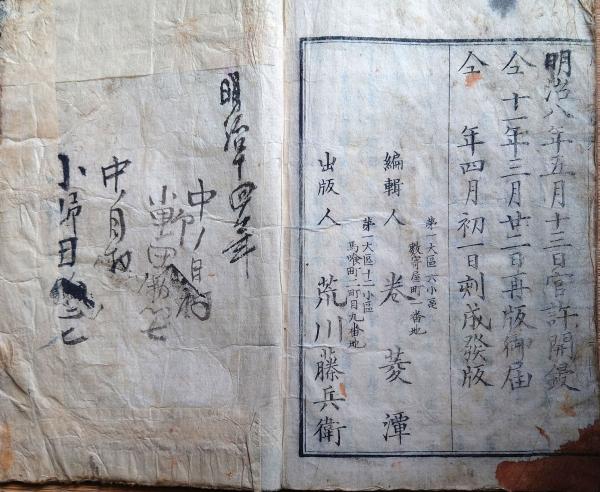 明治八年五月十三日官許開鐫
仝 十一年三月廿二日再版御届
仝 年四月初一日刻成發版
第一大區六小區
數寄屋町一番地
編輯人 卷菱潭
第一大區十二小區
馬喰町一町目九番地
出版人 荒川藤兵衛
明治十四年
中ノ月
中ノ月